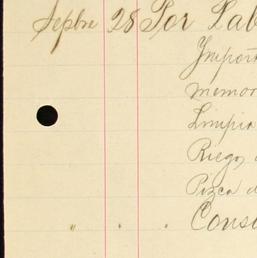 Septre 28 Por Lab
Import
memor
Limpia
Riego
Pizca d
" . . Cons